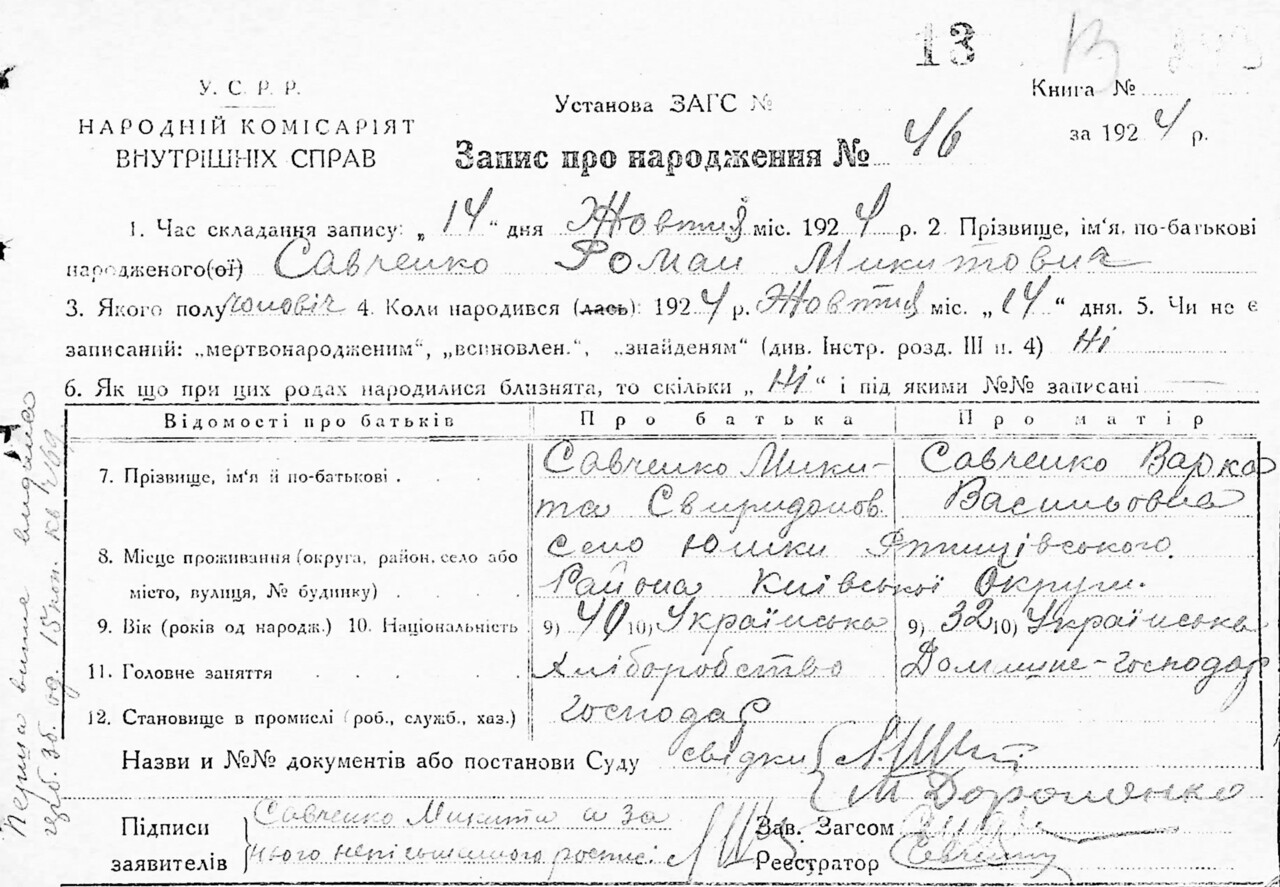 13
У. С. Р. Р.
НАРОДНІЙ КОМІСАРІЯТ
ВНУТРІШНІХ СПРАВ
Установа ЗАГС №
Книга №
за 1924 р.
Запис про народження № 46
1. Час складання запису: „ 14 “ дня Жовтня міс. 1924 р. 2. Прізвище, ім'я, по-батькові
народженого(ої) Савченко Роман Микитовна
3. Якого полу чоловіч 4. Коли народився (лась): 1924 р. Жовтня міс. „ 14 “ дня. 5. Чи не є
записаний: „мертвонародженим“, „всиновлен.“, „знайденям“ (див. Інстр. розд. III п. 4) Ні
6. Як що при цих родах народилися близнята, то скільки „ Ні “ і під якими №№ записані —
Відомості про батьків Про батька Про матір
7. Прізвище, ім'я й по-батькові . . . Савченко Мики- Савченко Варка
та Свиридонов Васильовна
8. Місце проживання (округа, район, село або село Юшки Ржищівського
місто, вулиця, № будинку) . . . . Района Київської Округи.
9. Вік (років од народж.) 10. Національність 9) 40 10) Українська 9) 32 10) Українська
11. Головне заняття . . . . . Хліборобство Домашне-господар
12. Становище в промислі (роб., служб., хаз.) господар
Назви и №№ документів або постанови Суду свідки
М Дорошенко
Підписи Савченко Микита а за Зав. Загсом
заявителів нього неписьменного роспис. Реестратор
Перша випис видана